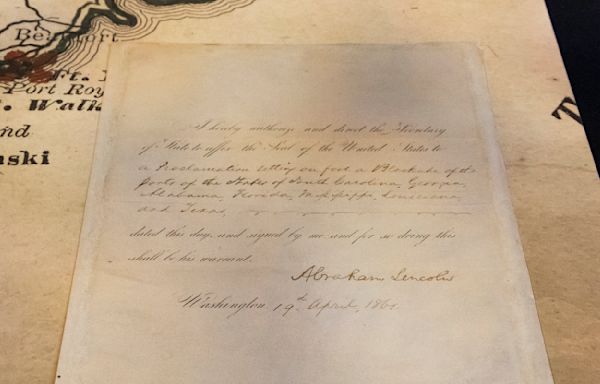 Beaufort
Ft.
Port Roy
. Walk
nd
nski
T
I hereby authorize and direct the Secretary
of State to affix the Seal of the United States to
a Proclamation setting on foot a Blockade of the
Ports of the States of South Carolina, Georgia,
Alabama, Florida, Mississippi, Louisiana
and Texas,
dated this day, and signed by me and for so doing this
shall be his warrant.
Abraham Lincoln
Washington, 19th April, 1861